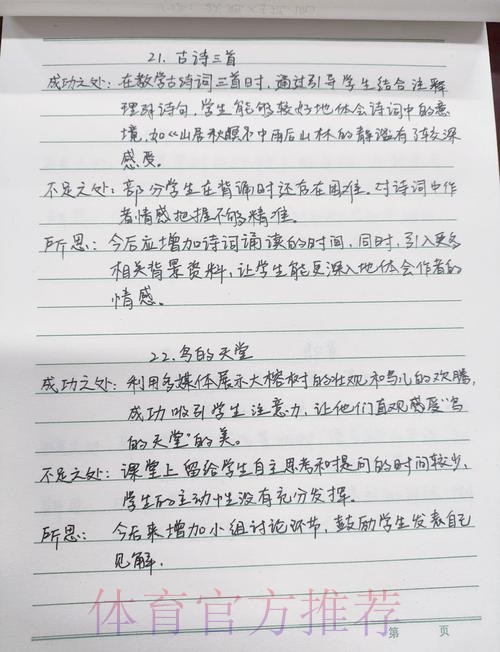 21. 古诗三首
成功之处：在教学古诗词三首时，通过引导学生结合注释
理解诗句，学生能够较好地体会诗词中的意
境，如《山居秋暝》中雨后山林的静谧有了较深
感受。
不足之处：部分学生在背诵时还存在困难。对诗词中作
者情感把握不够精准。
所思：今后应增加诗词诵读的时间，同时，引入更多
相关背景资料，让学生能更深入地体会作者的
情感。
22. 鸟的天堂
成功之处：利用多媒体展示大榕树的壮观和鸟儿的欢腾，
成功吸引学生注意力，让他们直观感受“鸟
的天堂”的美。
不足之处：课堂上留给学生自主思考和提问的时间较少，
学生的主动性没有充分发挥。
所思：今后来增加小组讨论环节，鼓励学生发表自己
见解.
体育官方推荐
第 页